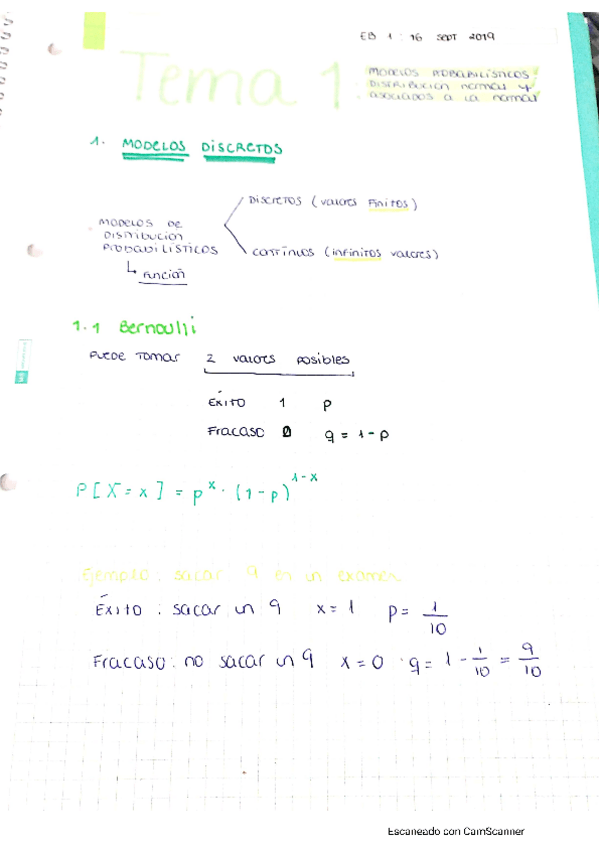 EB 1: 16 SEPT 2019
Tema 1:
MODELOS PROBABILÍSTICOS
DISTRIBUCIÓN normal y
asociados a la normal
1. MODELOS DISCRETOS
DISCRETOS (valores Finitos)
MODELOS DE
DISTRIBUCIÓN
PROBABILÍSTICOS
CONTÍNUOS (infinitos valores)
↳ Función
1.1 Bernoulli
PUEDE TOMAR 2 valores posibles
ÉXITO 1 p
Fracaso 0 q = 1 - p
P[X = x] = p^x · (1-p)^1-x
Ejemplo: sacar 9 en un examen
Éxito: sacar un 9 x = 1 p = 1/10
Fracaso: no sacar un 9 x = 0 · q = 1 - 1/10 = 9/10
Escaneado con CamScanner